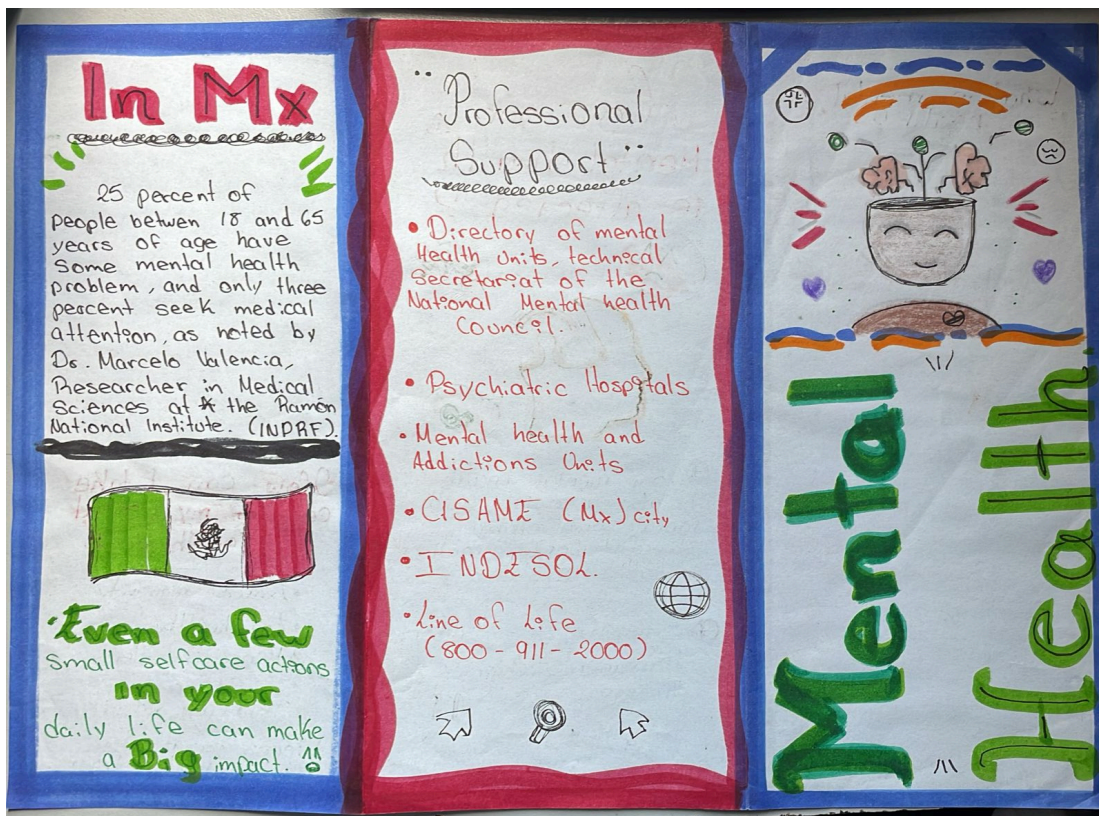 In Mx
25 percent of
people betwen 18 and 65
years of age have
some mental health
problem, and only three
percent seek medical
attention, as noted by
Dr. Marcelo Valencia,
Researcher in Medical
Sciences at the Ramón
National Institute. (INPRF).
·Even a few
small selfcare actions
in your
daily life can make
a Big impact.
¨Professional
Support¨
• Directory of mental
Health Units, technical
Secretariat of the
National Mental health
Council.
• Psychiatric Hospitals
• Mental health and
Addictions Units
• CISAME (Mx) city
• INDESOL.
• Line of Life
(800-911-2000)
Mental
Health.